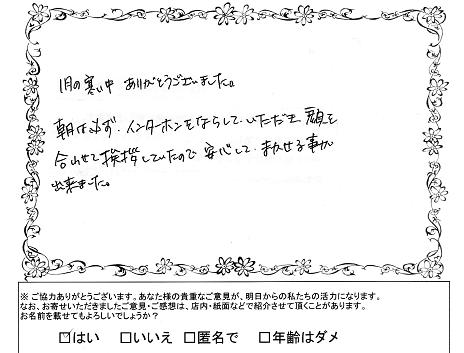 1月の寒い中 ありがとうございました。
朝は必ず、インターホンをならして、いただき 顔を
合わせて挨拶していたので 安心して、まかせる事が
出来ました。
※ ご協力ありがとうございます。あなた様の貴重なご意見が、明日からの私たちの活力になります。
なお、お寄せいただきましたご意見・ご感想は、店内・紙面などで紹介させて頂くことがあります。
お名前を載せてもよろしいでしょうか？
☑はい □いいえ □匿名で □年齢はダメ